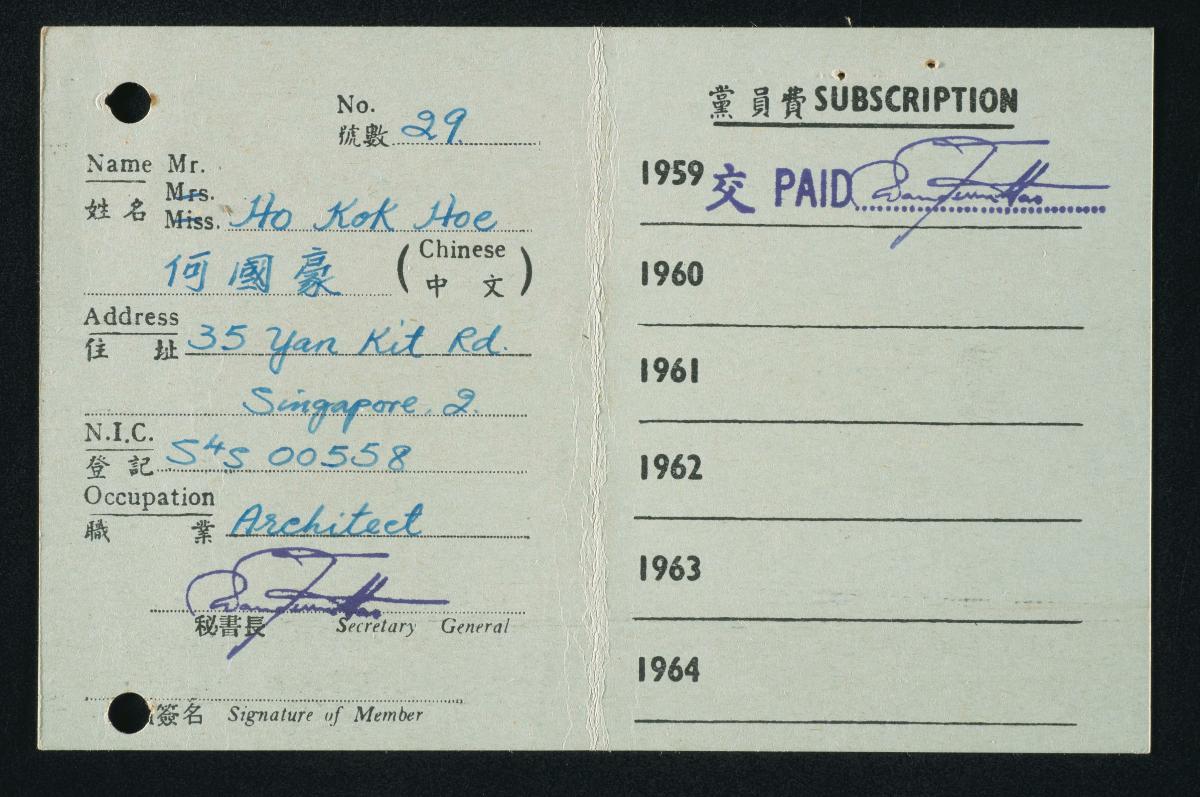 No.
號數 29.
Name Mr.
Mrs.
姓名 Miss. Ho Kok Hoe
何國豪 (Chinese
中文)
Address
住址 35 Yan Kit Rd.
Singapore. 2.
N.I.C.
登記 S4S 00558
Occupation
職業 Architect
秘書長 Secretary General
簽名 Signature of Member
黨員費 SUBSCRIPTION
1959 交 PAID
1960
1961
1962
1963
1964